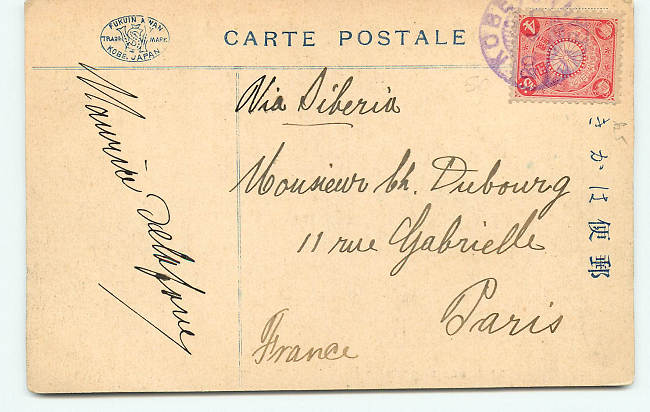 FUKUIN KWAN
TRADE MARK
KOBE, JAPAN
CARTE POSTALE
KOBE
4
Via Siberia
Monsieur Ch. Dubourg
11 rue Gabrielle
Paris
France
Maurice
きかは便郵